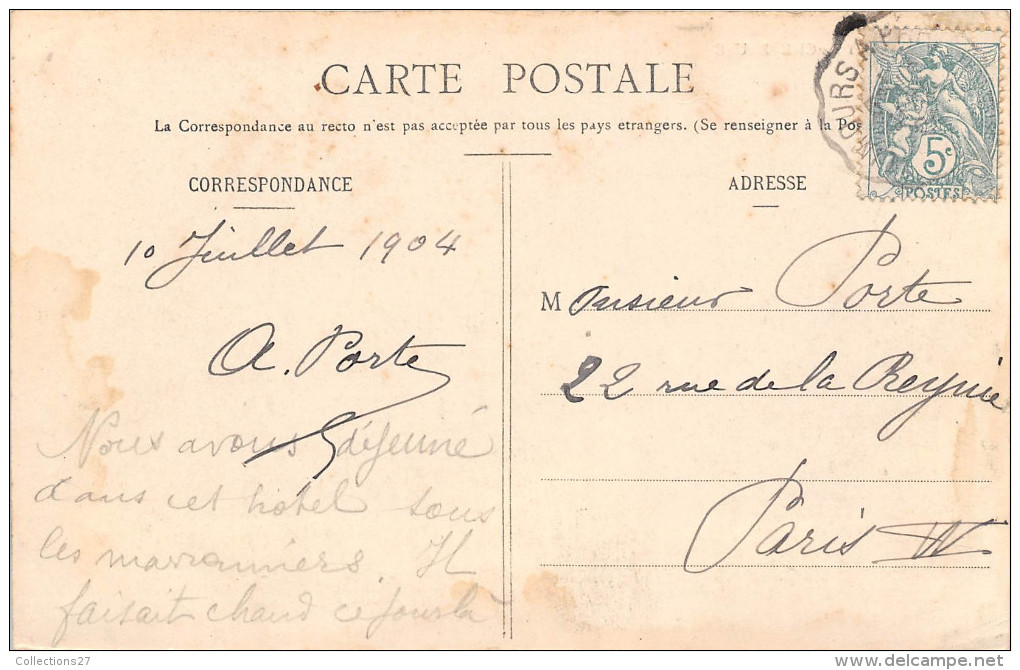 CARTE POSTALE
La Correspondance au recto n'est pas acceptée par tous les pays etrangers. (Se renseigner à la Pos
CORRESPONDANCE
10 Juillet 1904
A. Porte
Nous avons déjeuné
dans cet hôtel sous
les marronniers. Il
faisait chaud ce jour là
ADRESSE
5c
POSTES
OURS A
Monsieur Porte
22 rue de la Reynie
Paris IV
Collections27
delcampe.net